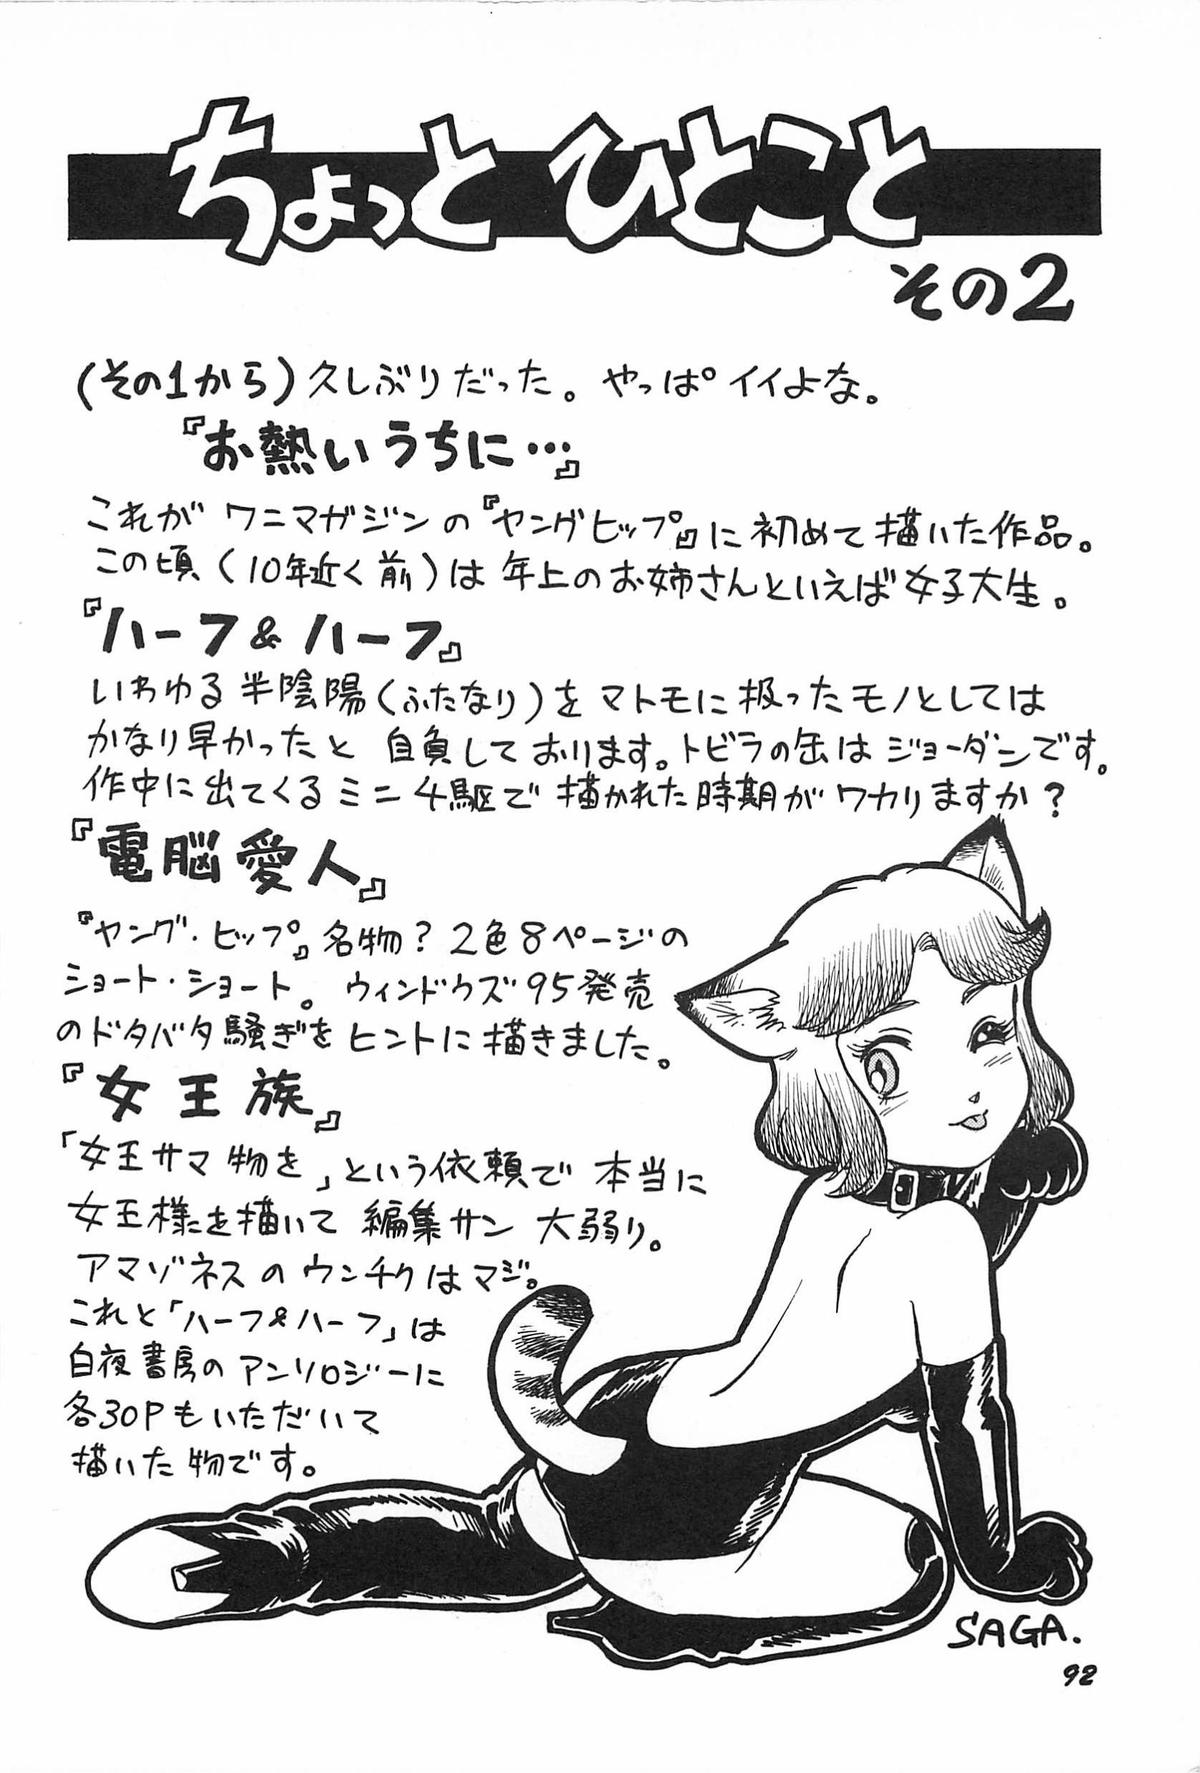 ちょっと ひとこと
その2
(その1から)久しぶりだった。やっぱ イイよな。
『お熱いうちに…』
これが ワニマガジンの『ヤングヒップ』に初めて描いた作品。
この頃(10年近く前)は年上のお姉さんといえば女子大生。
『ハーフ&ハーフ』
いわゆる半陰陽(ふたなり)をマトモに扱ったモノとしては
かなり早かったと 自負しております。トビラの缶はジョーダンです。
作中に出てくるミニ4駆で描かれた時期がワカリますか?
『電脳愛人』
『ヤング・ヒップ』名物?2色8ページの
ショート・ショート。ウィンドウズ95発売
のドタバタ騒ぎをヒントに描きました。
『女王族』
「女王サマ物を」という依頼で本当に
女王様を描いて 編集サン 大弱り。
アマゾネスのウンチクはマジ。
これと「ハーフ&ハーフ」は
白夜書房のアンソロジーに
各30Pもいただいて
描いた物です。
SAGA.
92